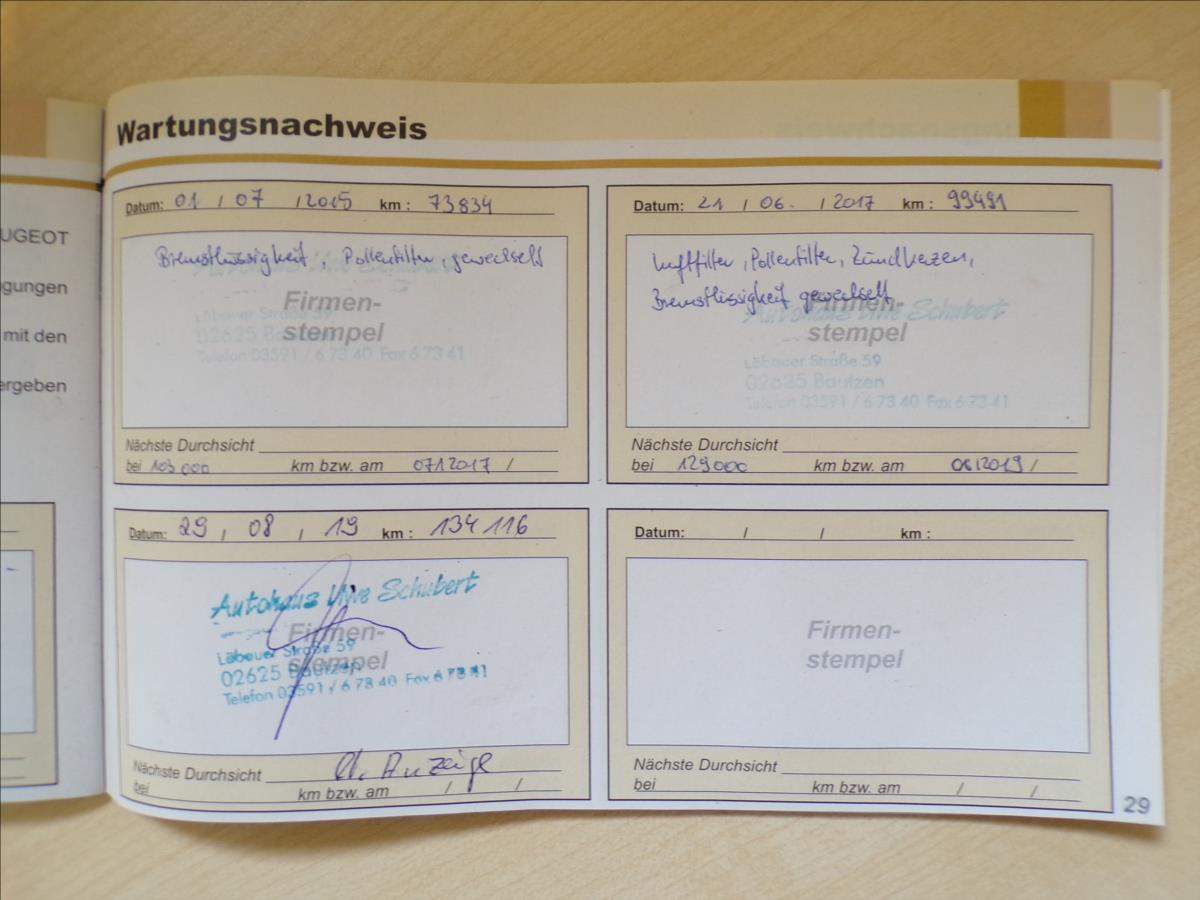 Wartungsnachweis
UGEOT
gungen
mit den
ergeben
Datum: 01 / 07 / 2015 km : 73834
Bremsflüssigkeit, Pollenfilter, gewechselt
Autohaus Uwe Schubert
Firmen-
stempel
Löbauer Straße 59
02625 Bautzen
Telefon 03591 / 6 73 40 Fax 6 73 41
Nächste Durchsicht
bei 103 000 km bzw. am 07/2017 /
Datum: 21 / 06. / 2017 km : 99491
Luftfilter, Pollenfilter, Zündkerzen,
Bremsflüssigkeit gewechselt
Autohaus Uwe Schubert
Firmen-
stempel
Löbauer Straße 59
02625 Bautzen
Telefon 03591 / 6 73 40 Fax 6 73 41
Nächste Durchsicht
bei 129000 km bzw. am 06/2019 /
Datum: 29 / 08 / 19 km : 134 116
Autohaus Uwe Schubert
Firmen-
stempel
Löbauer Straße 59
02625 Bautzen
Telefon 03591 / 6 73 40 Fax 6 73 41
Nächste Durchsicht Anzeige
bei km bzw. am / /
Datum: / / km :
Firmen-
stempel
Nächste Durchsicht
bei km bzw. am / /
29